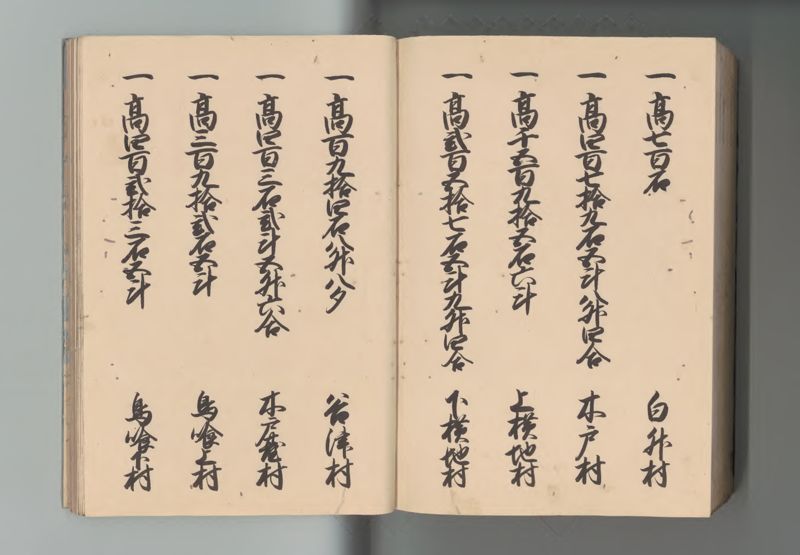 一 高七百石 白升村
一 高四百七拾九石五斗八升四合 木戸村
一 高千五百九拾五石六斗 上横地村
一 高弐百五拾七石五斗九升四合 下横地村
一 高百九拾四石八升八夕 谷津村
一 高四百三石弐斗五升六合 木戸苑村
一 高三百九拾弐石五斗 鳥喰上村
一 高四百弐拾三石五斗 鳥喰下村